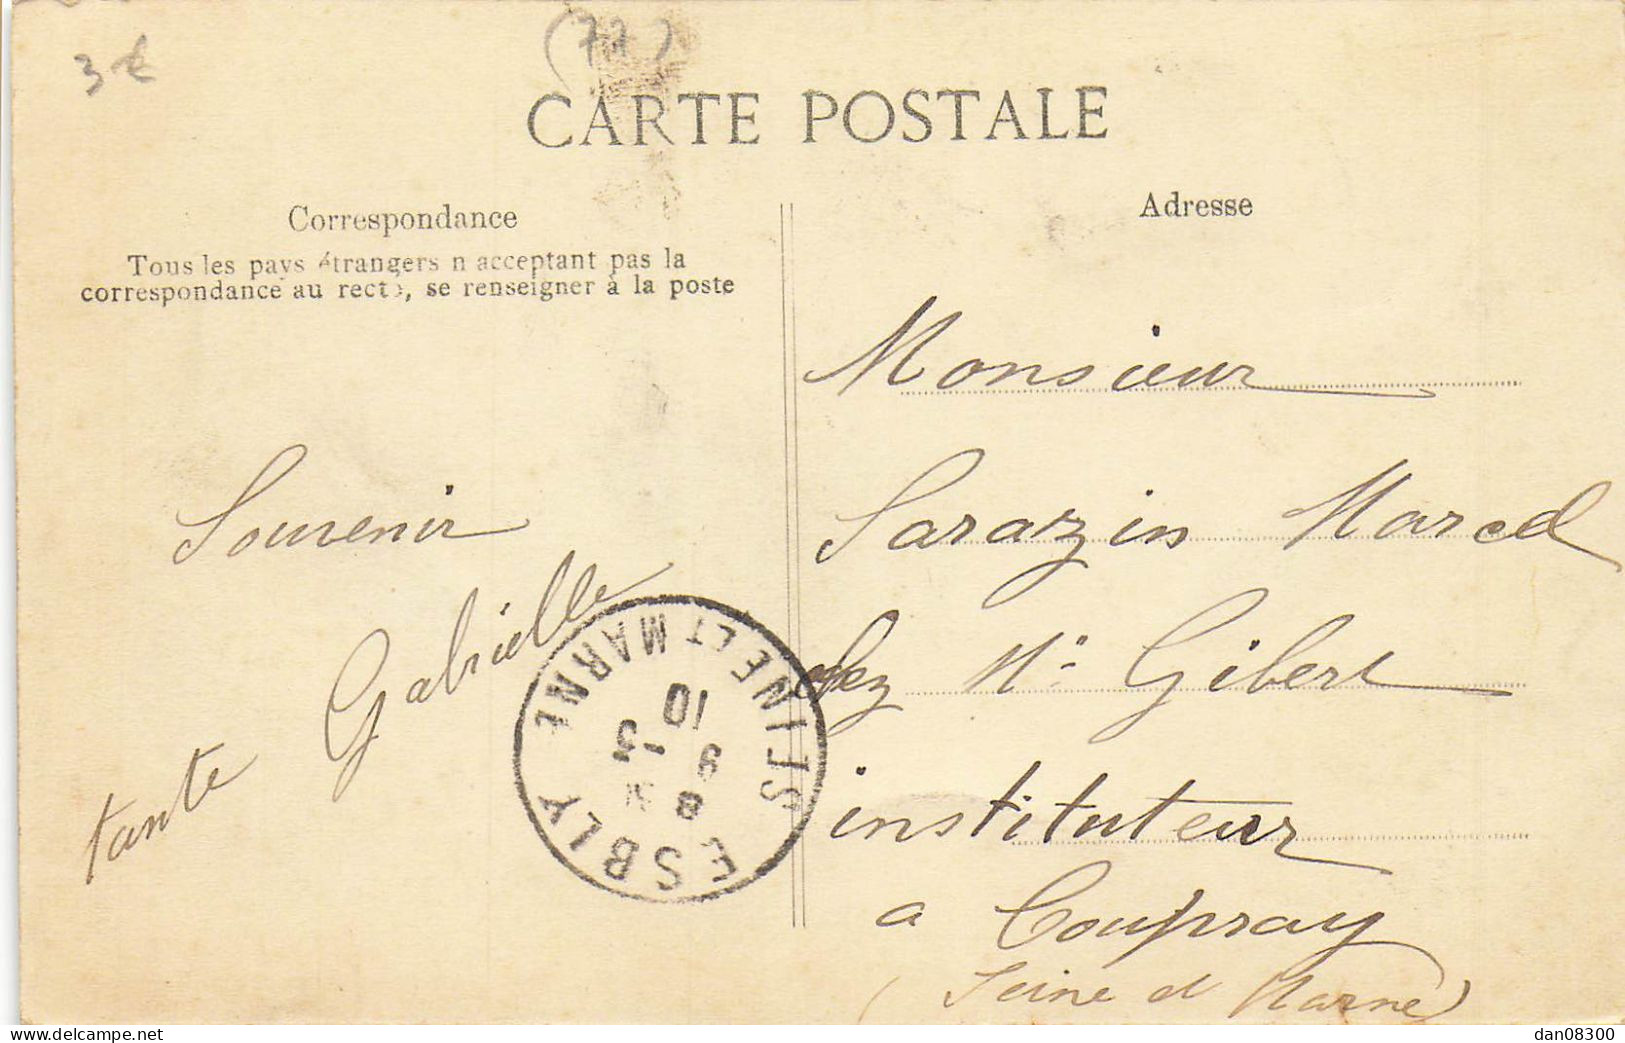 (77)
3 €
CARTE POSTALE
Correspondance
Tous les pays étrangers n acceptant pas la
correspondance au recto, se renseigner à la poste
Adresse
Souvenir
tante Gabrielle
Monsieur
Sarazin Marcel
chez Mr Gibert
instituteur
a Coupvray
(Seine et Marne)
ESBLY SEINE ET MARNE
10
3
9
8
dan08300